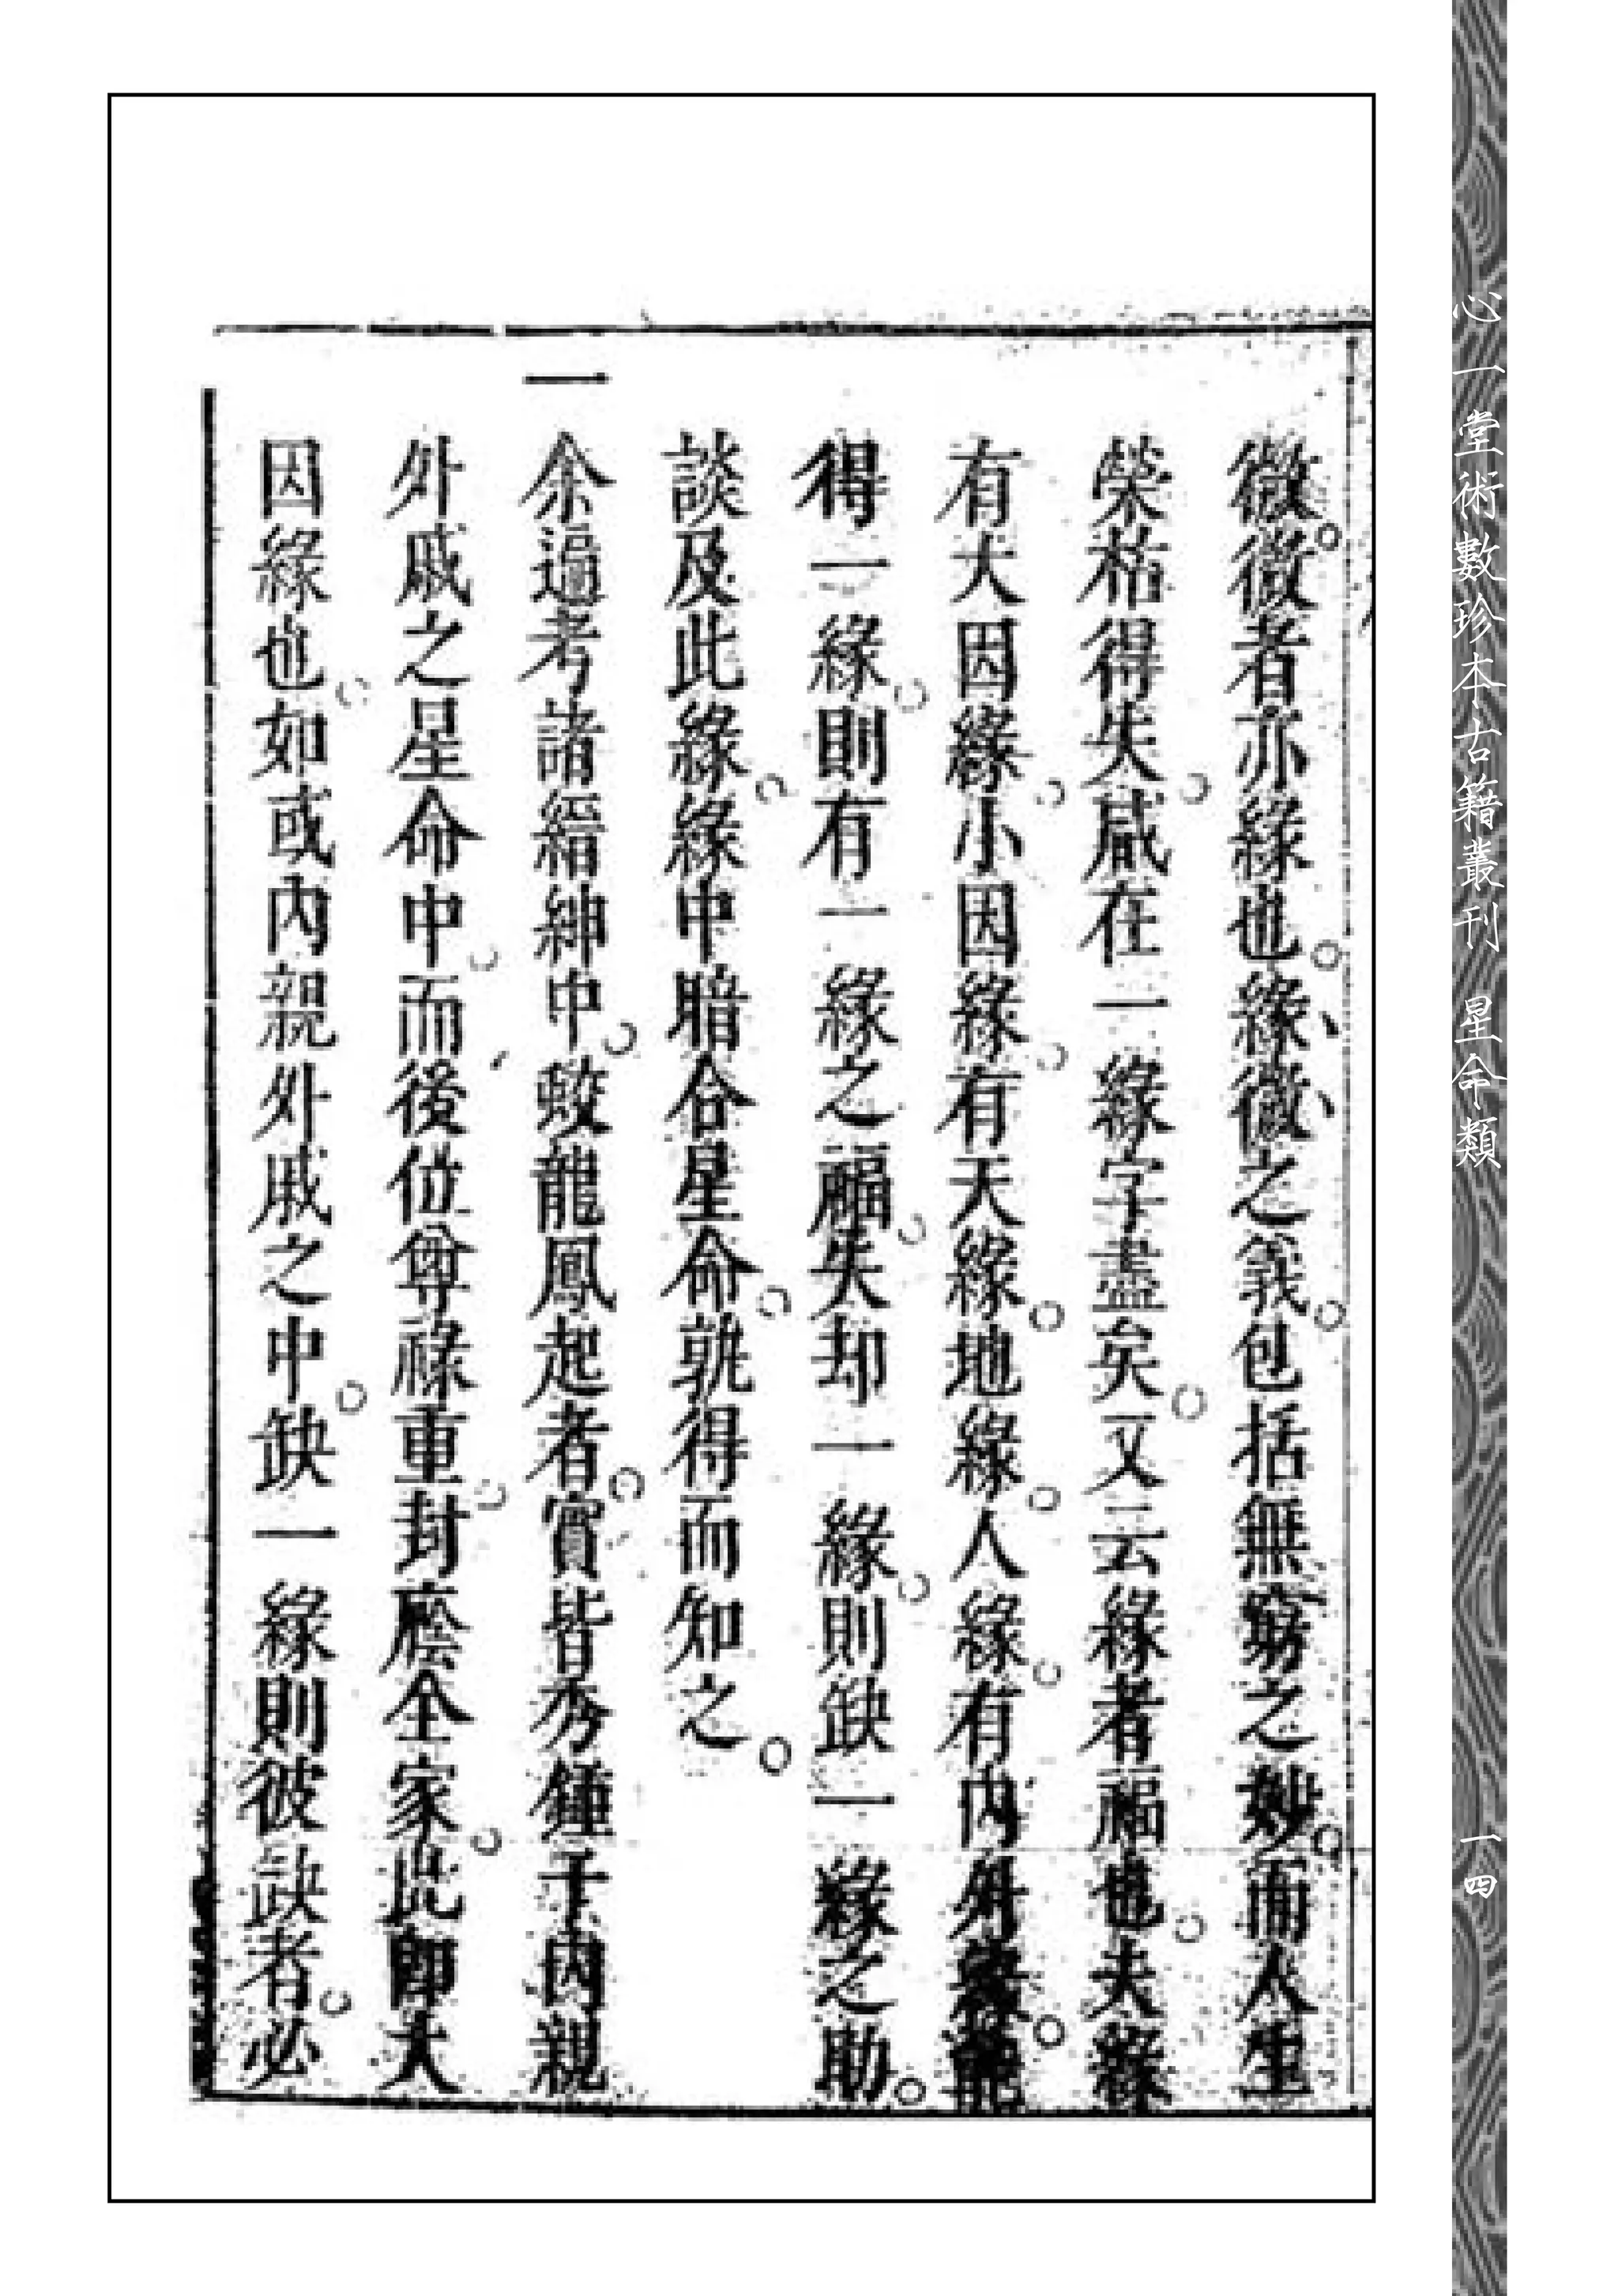 徵徵者亦緣也緣徵之義包括無窮之妙而人生
榮枯得失咸在一緣字盡矣又云緣者福也夫緣
有大因緣小因緣有天緣地緣人緣有內外緣能
得一緣則有一緣之福失却一緣則缺一緣之助
談及此緣緣中暗合星命孰得而知之
一余遍考諸縉紳中蛟龍鳳起者實皆秀鍾于內親
外戚之星命中而後位尊祿重封廕全家此即大
因緣也如或內親外戚之中缺一緣則彼缺者必
心一堂術數珍本古籍叢刊 星命類
一四